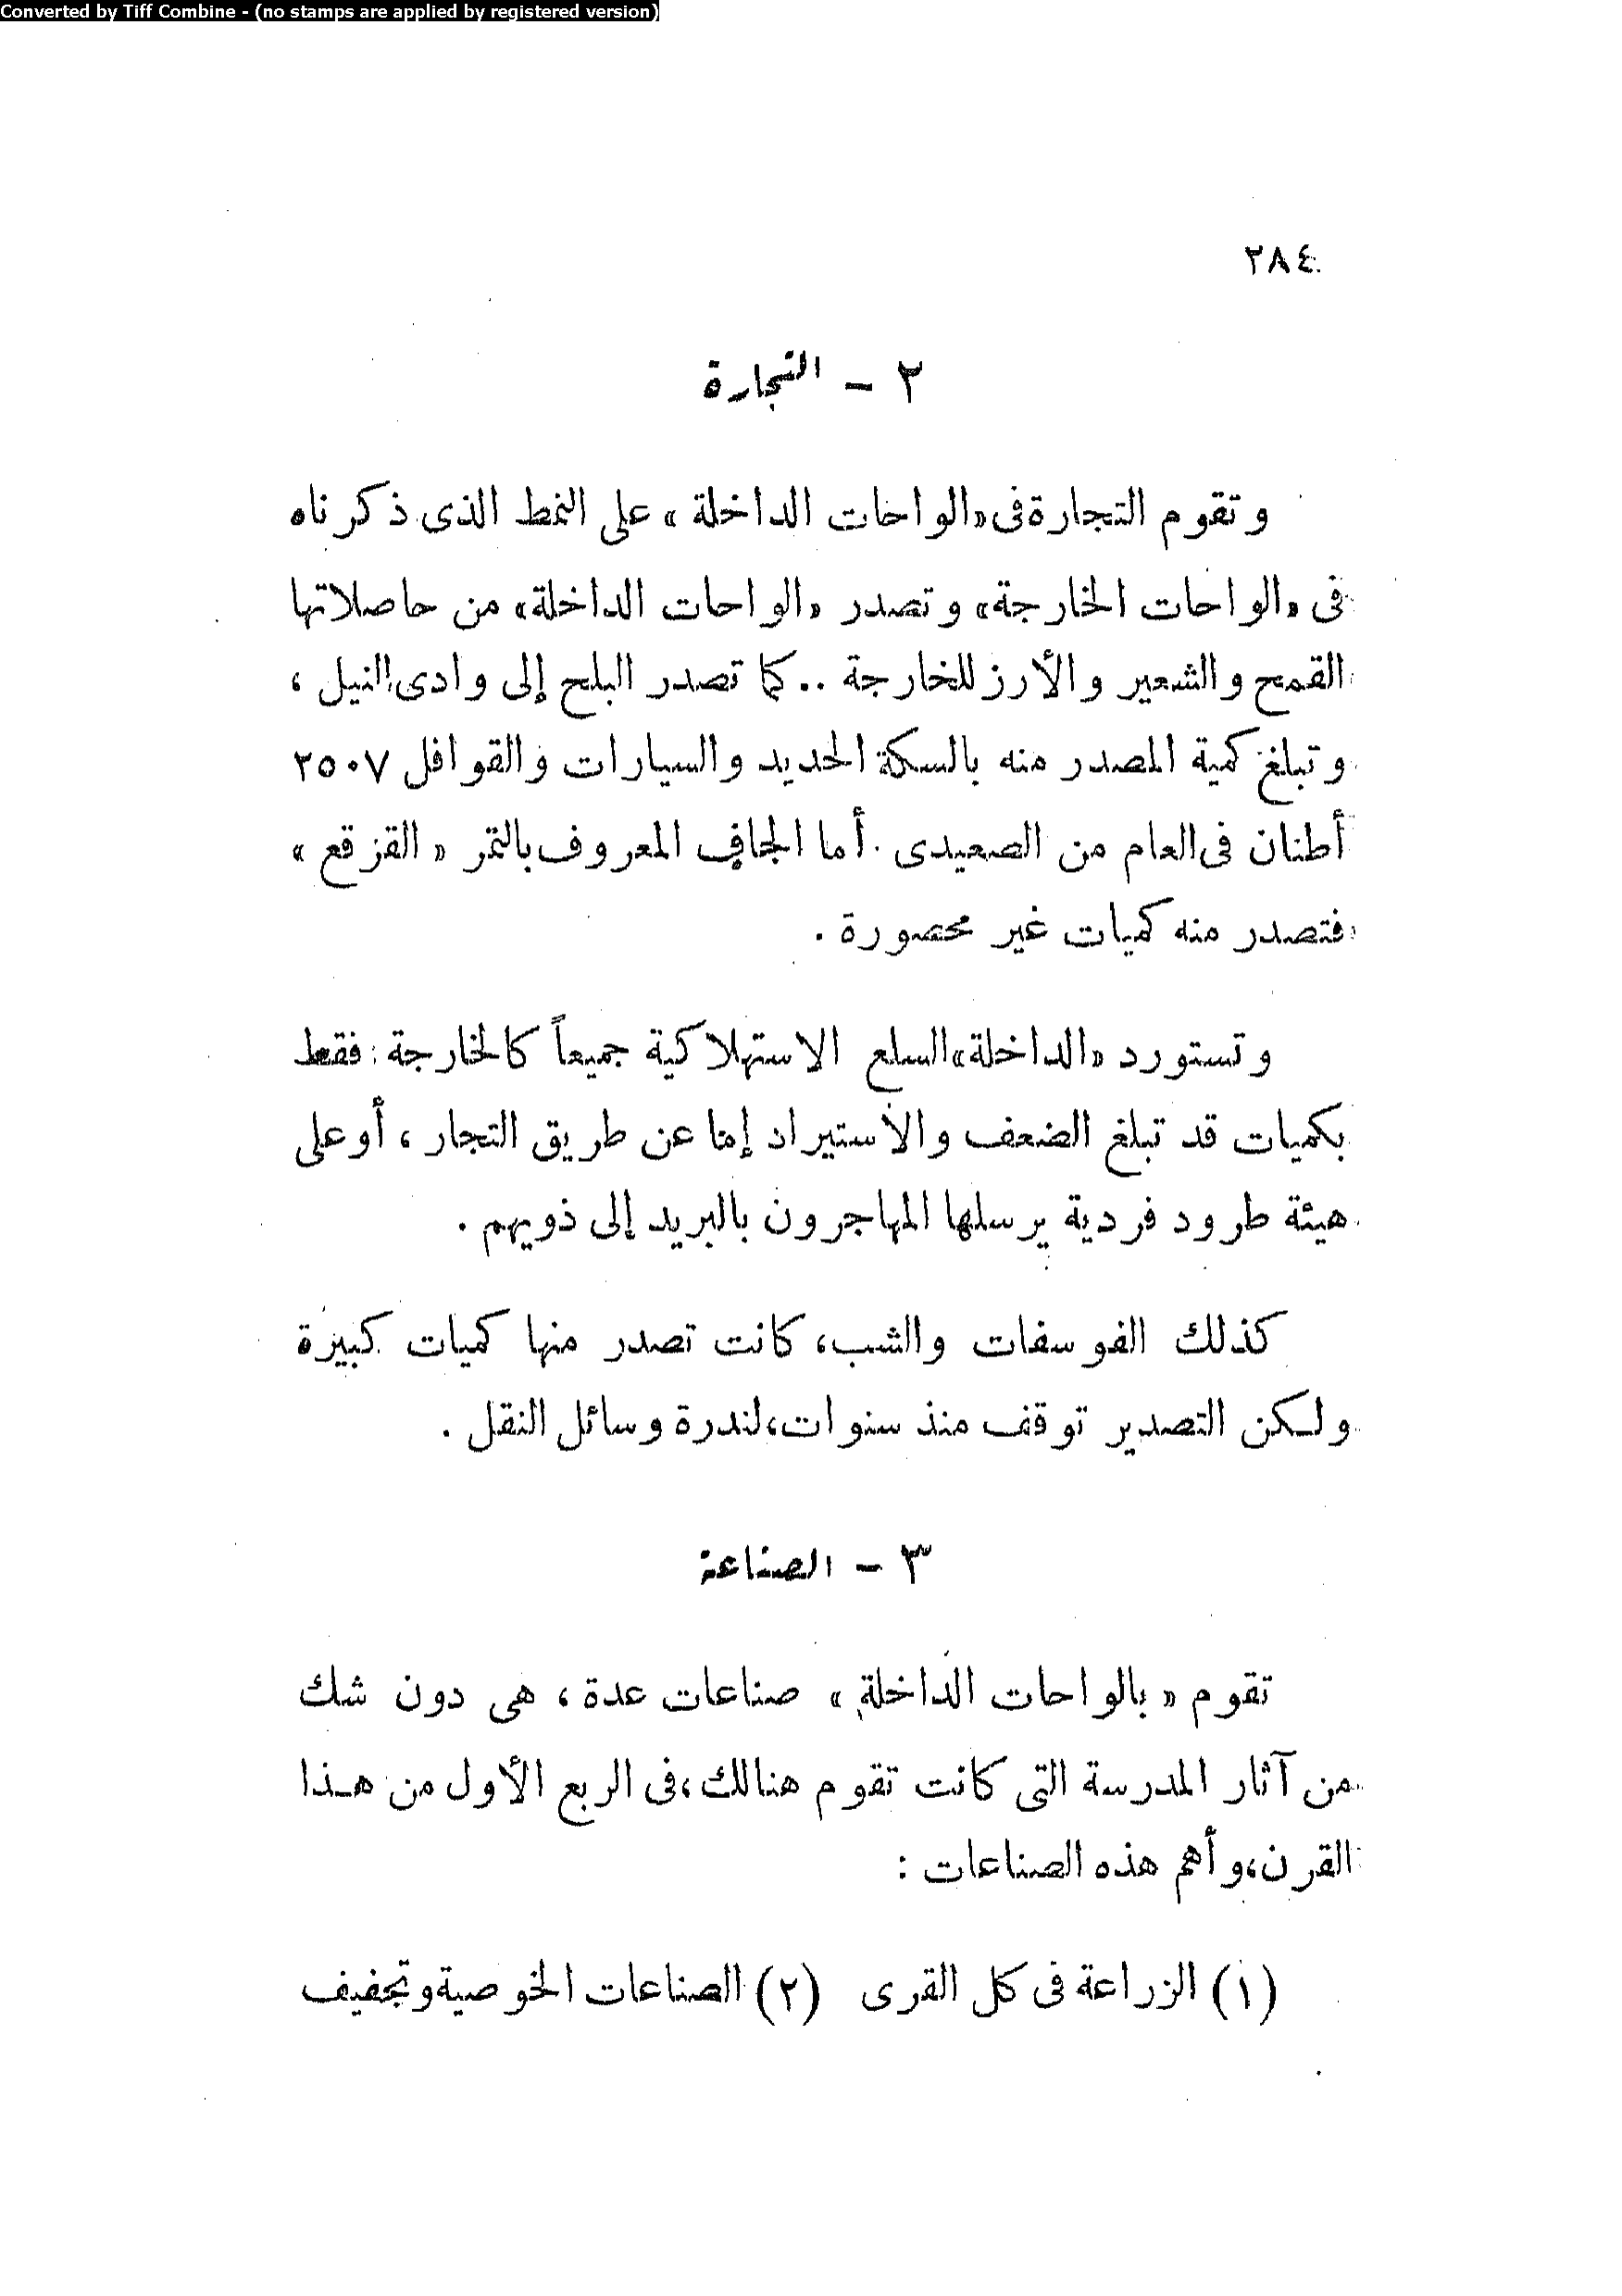 Converted by Tiff Combine - (no stamps are applied by registered version)
٢٨٤
٢ – التجارة
وتقوم التجارة فى «الواحات الداخلة» على النمط الذى ذكرناه
فى «الواحات الخارجة» وتصدر «الواحات الداخلة» من حاصلاتها
القمح والشعير والأرز للخارجة .. كما تصدر البلح إلى وادى النيل ،
وتبلغ كمية المصدر منه بالسكة الحديد والسيارات والقوافل ٢٥٠٧
أطنان فى العام من الصعيدى . أما الجاف المعروف بالتمر « القزقع »
فتصدر منه كميات غير محصورة .
وتستورد «الداخلة» السلع الاستهلاكية جميعاً كالخارجة : فقط
بكميات قد تبلغ الضعف والاستيراد إما عن طريق التجار ، أو على
هيئة طرود فردية يرسلها المهاجرون بالبريد إلى ذويهم .
كذلك الفوسفات والشب، كانت تصدر منها كميات كبيرة
ولكن التصدير توقف منذ سنوات، لندرة وسائل النقل .
٣ – الصناعة
تقوم « بالواحات الداخلة » صناعات عدة ، هى دون شك
من آثار المدرسة التى كانت تقوم هنالك، فى الربع الأول من هذا
القرن، وأهم هذه الصناعات :
(١) الزراعة فى كل القرى (٢) الصناعات الخوصية وتجفيف